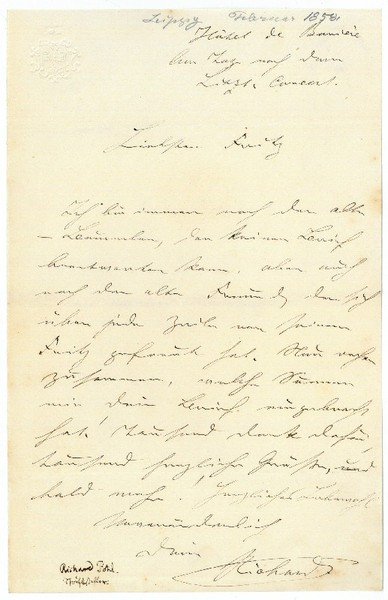 Leipzig Februar 1858.
Hôtel de Bavière
Am Tage nach dem
Liszt-Concert.
Liebster Fritz
Ich bin immer noch der alte
, der keinen Brief
beantworten kann, aber auch
noch der alte Freund, der sich
über jede Zeile von seinem
Fritz gefreut hat. Nun
zusammen, welche
mir dein Brief eingebracht
hat. Tausend Dank dafür,
tausend herzliche Grüße, und
bald mehr. Herzliches
Unveränderlich
Dein
Richard
Richard Pohl
Schriftsteller.